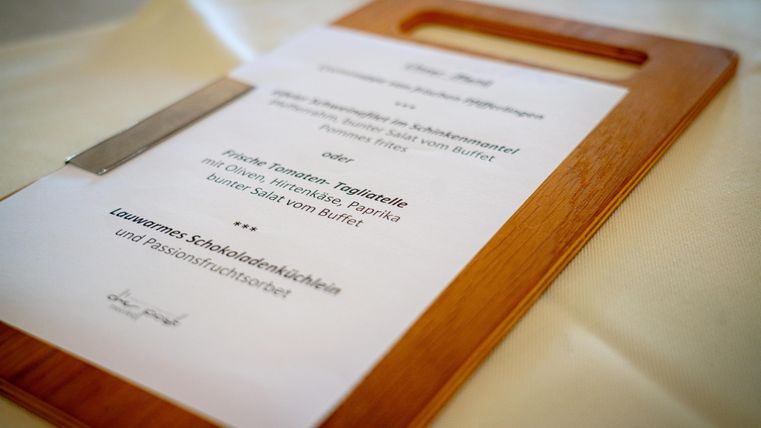 Cremesuppe von frischen Pfifferlingen
***
Schweinefilet im Schinkenmantel
Pfefferrahm, bunter Salat vom Buffet
Pommes frites
oder
Frische Tomaten- Tagliatelle
mit Oliven, Hirtenkäse, Paprika
bunter Salat vom Buffet
***
Lauwarmes Schokoladenküchlein
und Passionsfruchtsorbet